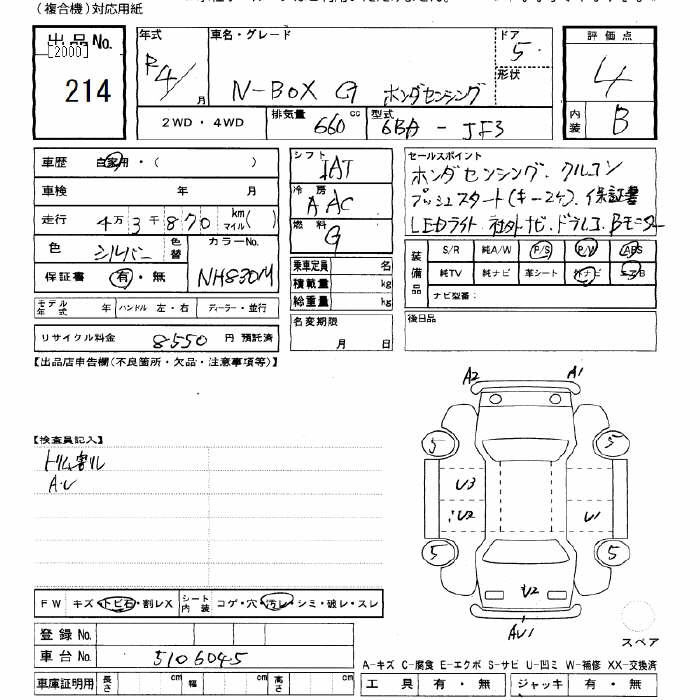 （複合機）対応用紙
出品No.
[2000]
214
年式
R4/
月
車名・グレード
N-BOX G ホンダセンシング
ドア
5
形状
評価点
4
内装
B
2WD・4WD
排気量
660 cc
型式
6BA - JF3
車歴 自家用・（ ）
車検 年 月
走行 4万3千870 km マイル( )
色 シルバー 色替 カラーNo.
NH830M
保証書 有・無
モデル年式 年 ハンドル 左・右 ディーラー・並行
リサイクル料金 8550 円 預託済
シフト
IAT
冷房
AAC
燃料
G
乗車定員 名
積載量 kg
総重量 kg
名変期限
月 日
セールスポイント
ホンダセンシング、クルコン
プッシュスタート(キー2ケ)、保証書
LEDライト 社外ナビ、ドラレコ、Bモニター
装備品
S/R 純A/W P/S P/W ABS
純TV 純ナビ 革シート 外ナビ エアB
ナビ型番：
後日品
【出品店申告欄（不良箇所・欠品・注意事項等）】
【検査員記入】
トリム割レ
A.U
A2 A1
5 5
U3
U2 U1
5 5
U2
AU1
スペア
FW キズ・トビ石・割レX シート内装 コゲ・穴・汚レ・シミ・破レ・スレ
登録No.
車台No. 5106045
車庫証明用 長さ cm 幅 cm 高さ cm
A-キズ C-腐食 E-エクボ S-サビ U-凹ミ W-補修 XX-交換済
工具 有・無 ジャッキ 有・無